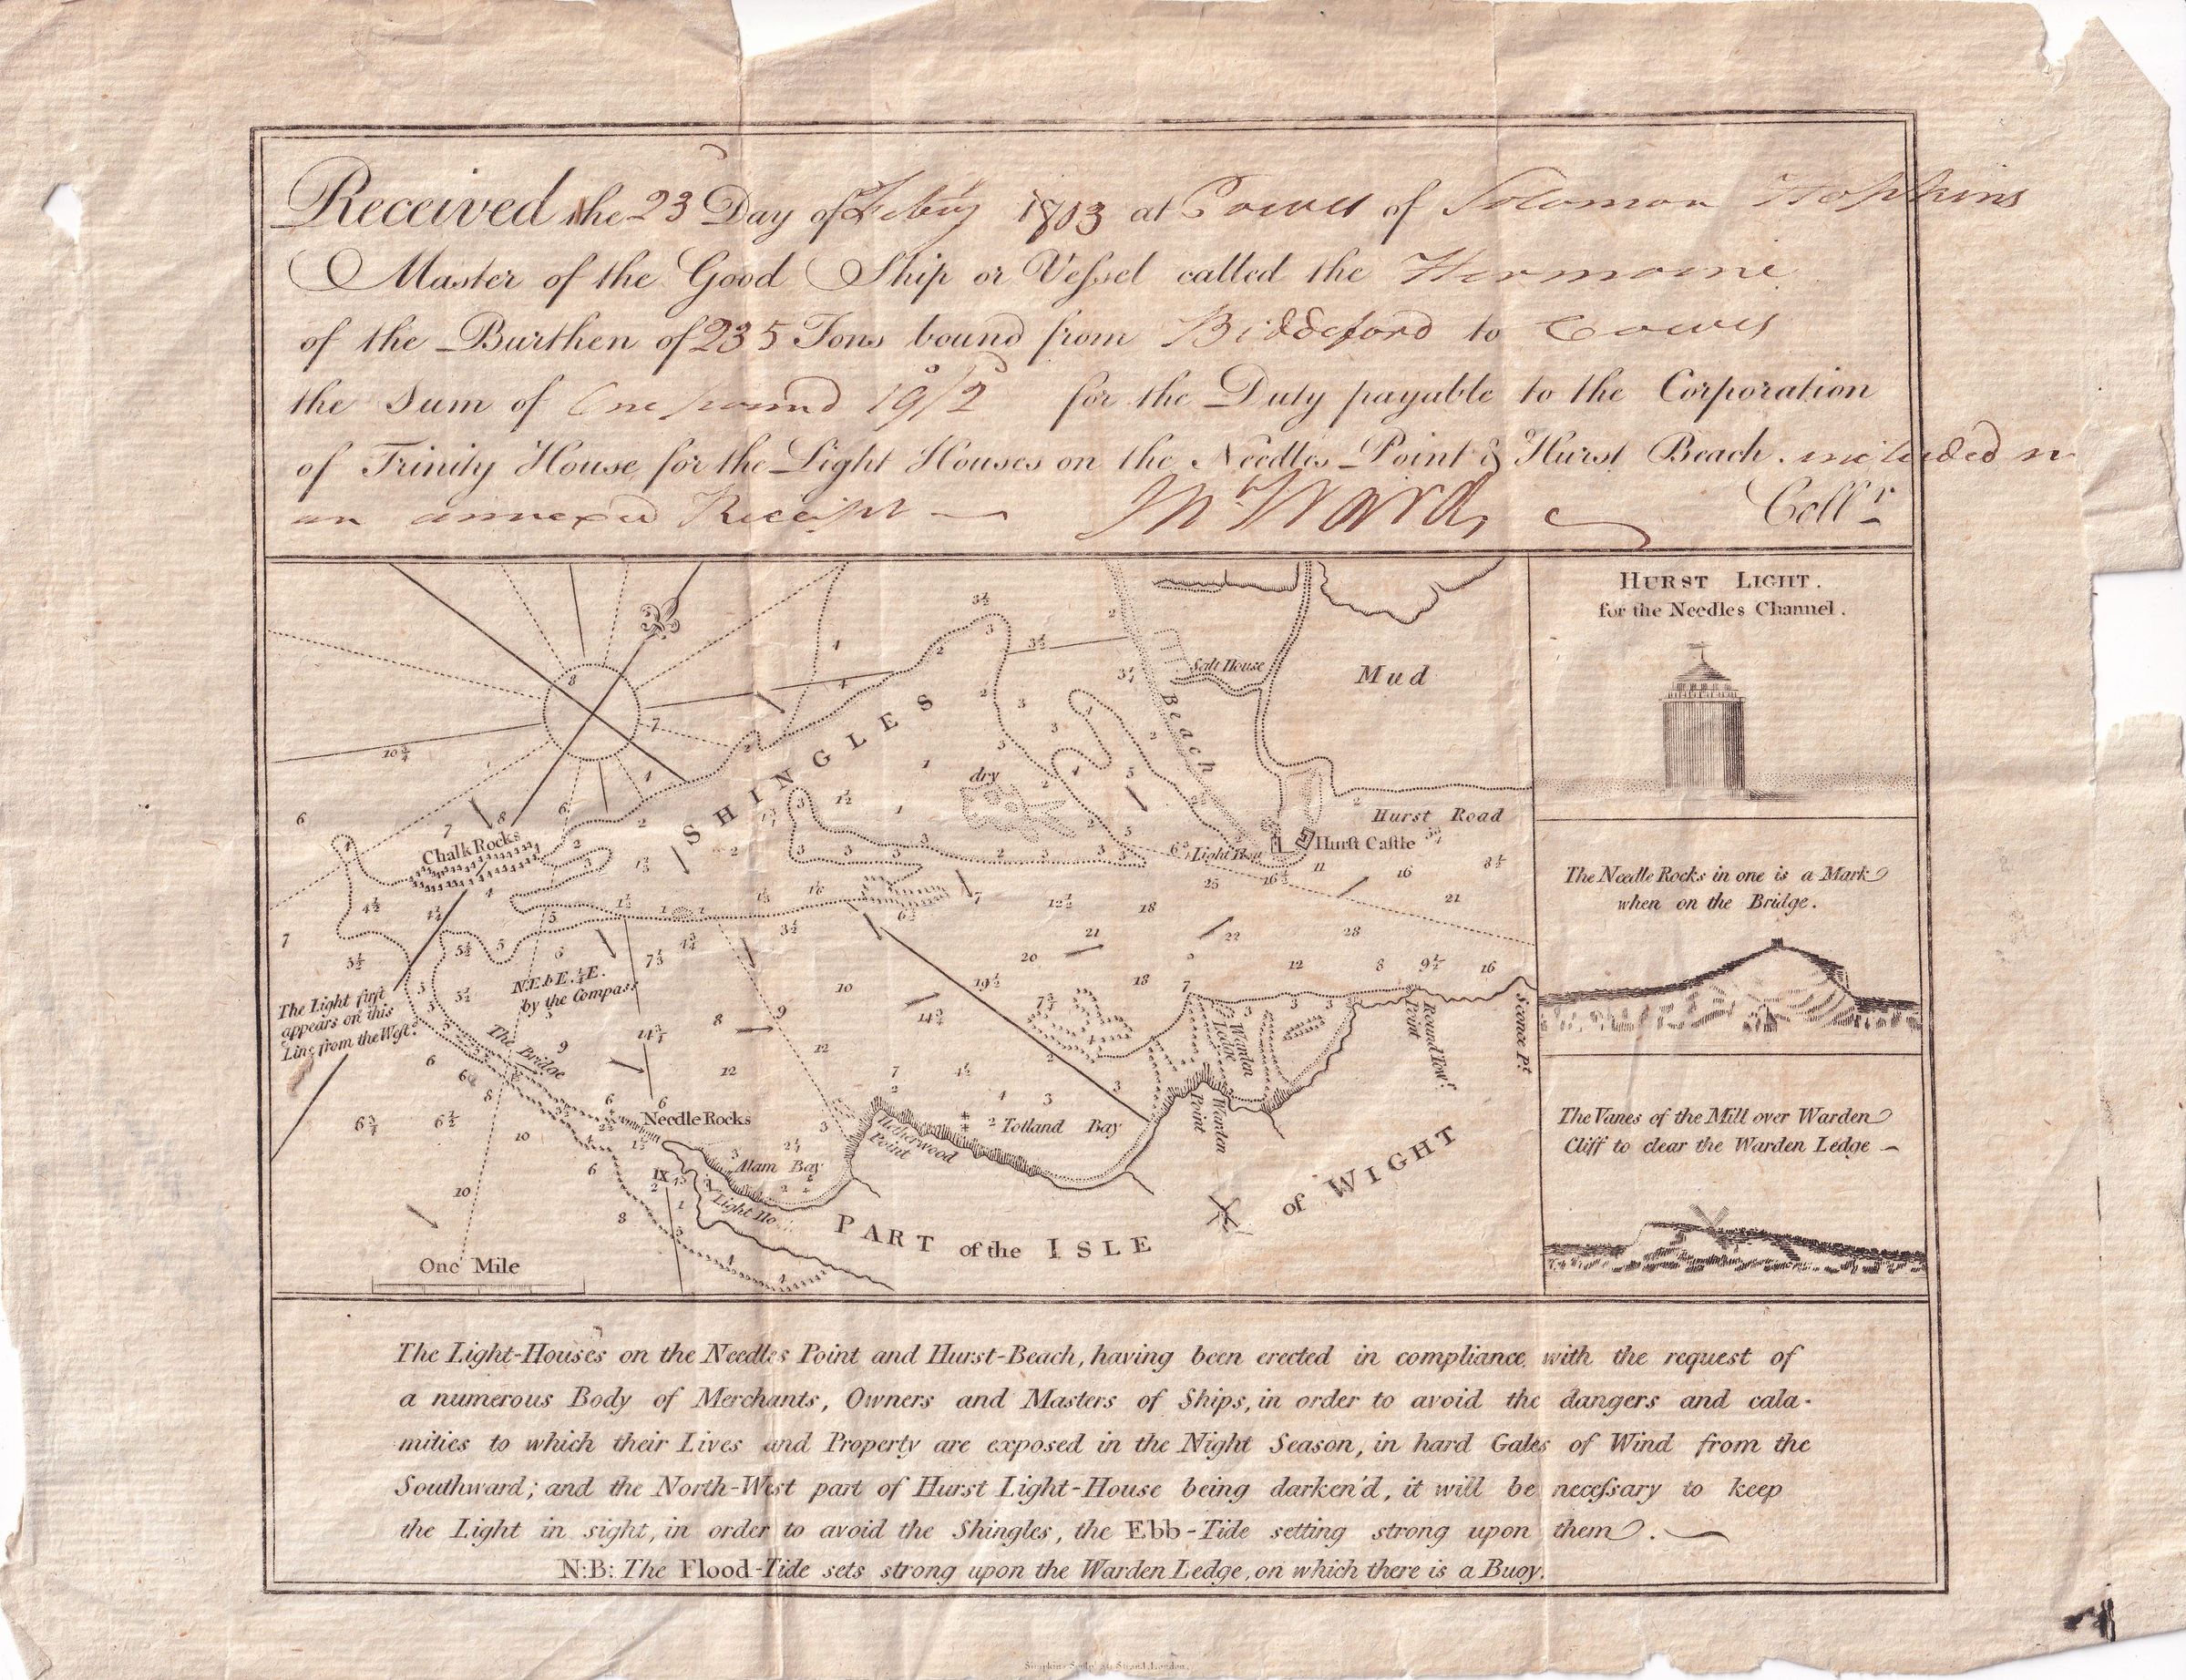 Received the 23 Day of Feb'ry 1803 at Cowes of Solomon Hopkins
Master of the Good Ship or Veſsel called the Hermoine
of the Burthen of 235 Tons bound from Biddeford to Cowes
the Sum of One pound 19/2 for the Duty payable to the Corporation
of Trinity House for the Light Houses on the Needles Point & Hurst Beach. included in
an annexed Receipt — Ward, Collr
HURST LIGHT.
for the Needles Channel.
The Needle Rocks in one is a Mark
when on the Bridge.
The Vanes of the Mill over Warden
Cliff to clear the Warden Ledge
SHINGLES
dry
Beach
Salt House
Mud
Hurst Road
Hurst Castle
Chalk Rocks
The Light first
appears on this
Line from the West.
N.E.b E.¼E.
by the Compass
The Bridge
Needle Rocks
Alam Bay
Light Ho.
Netherwood
Point
Totland Bay
Warden
Ledge
Warden
Point
Round Tow.
Point
Sconce Pt.
PART of the ISLE of WIGHT
One Mile
The Light-Houses on the Needles Point and Hurst-Beach, having been erected in compliance with the request of
a numerous Body of Merchants, Owners and Masters of Ships, in order to avoid the dangers and cala-
mities to which their Lives and Property are exposed in the Night Season, in hard Gales of Wind from the
Southward; and the North-West part of Hurst Light-House being darken'd, it will be neceſsary to keep
the Light in sight, in order to avoid the Shingles, the Ebb-Tide setting strong upon them.
N:B: The Flood-Tide sets strong upon the Warden Ledge, on which there is a Buoy.